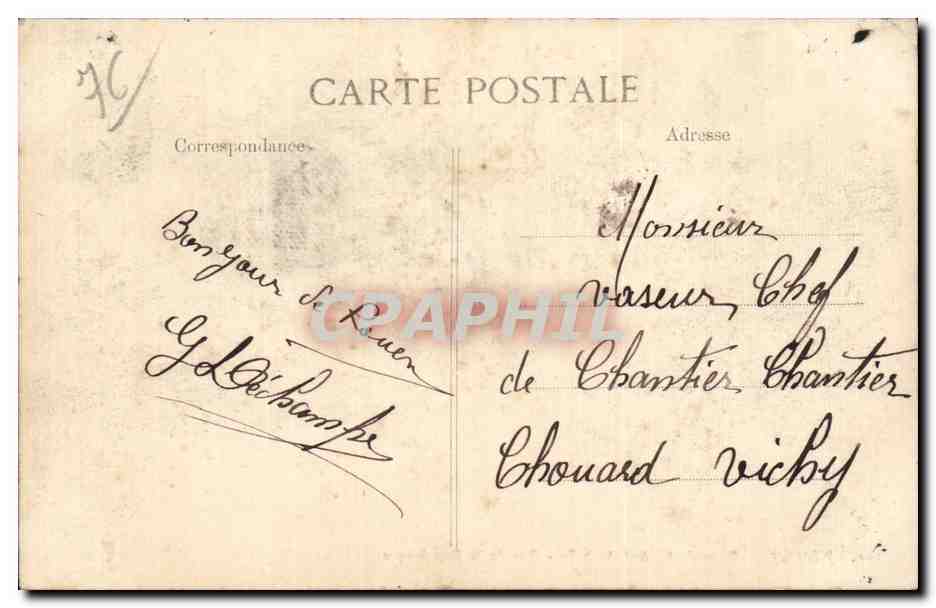 76
CARTE POSTALE
Correspondance
Adresse
Bonjour de Rouen
Monsieur
Vaseur, Chef
de Chantier Chantier
Chouard Vichy
CPARPHIL